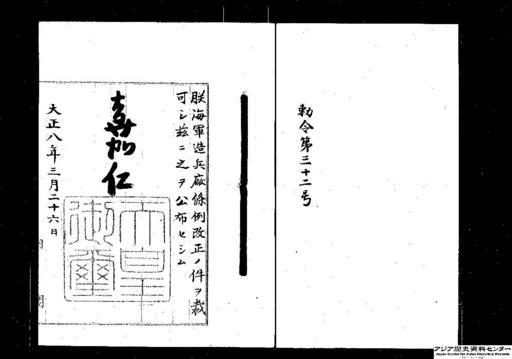 勅令第三十二号
朕海軍造兵廠條例改正ノ件ヲ裁
可シ茲ニ之ヲ公布セシム
嘉仁
天皇御璽
大正八年三月二十六日
アジア歴史資料センター
Japan Center for Asian Historical Records